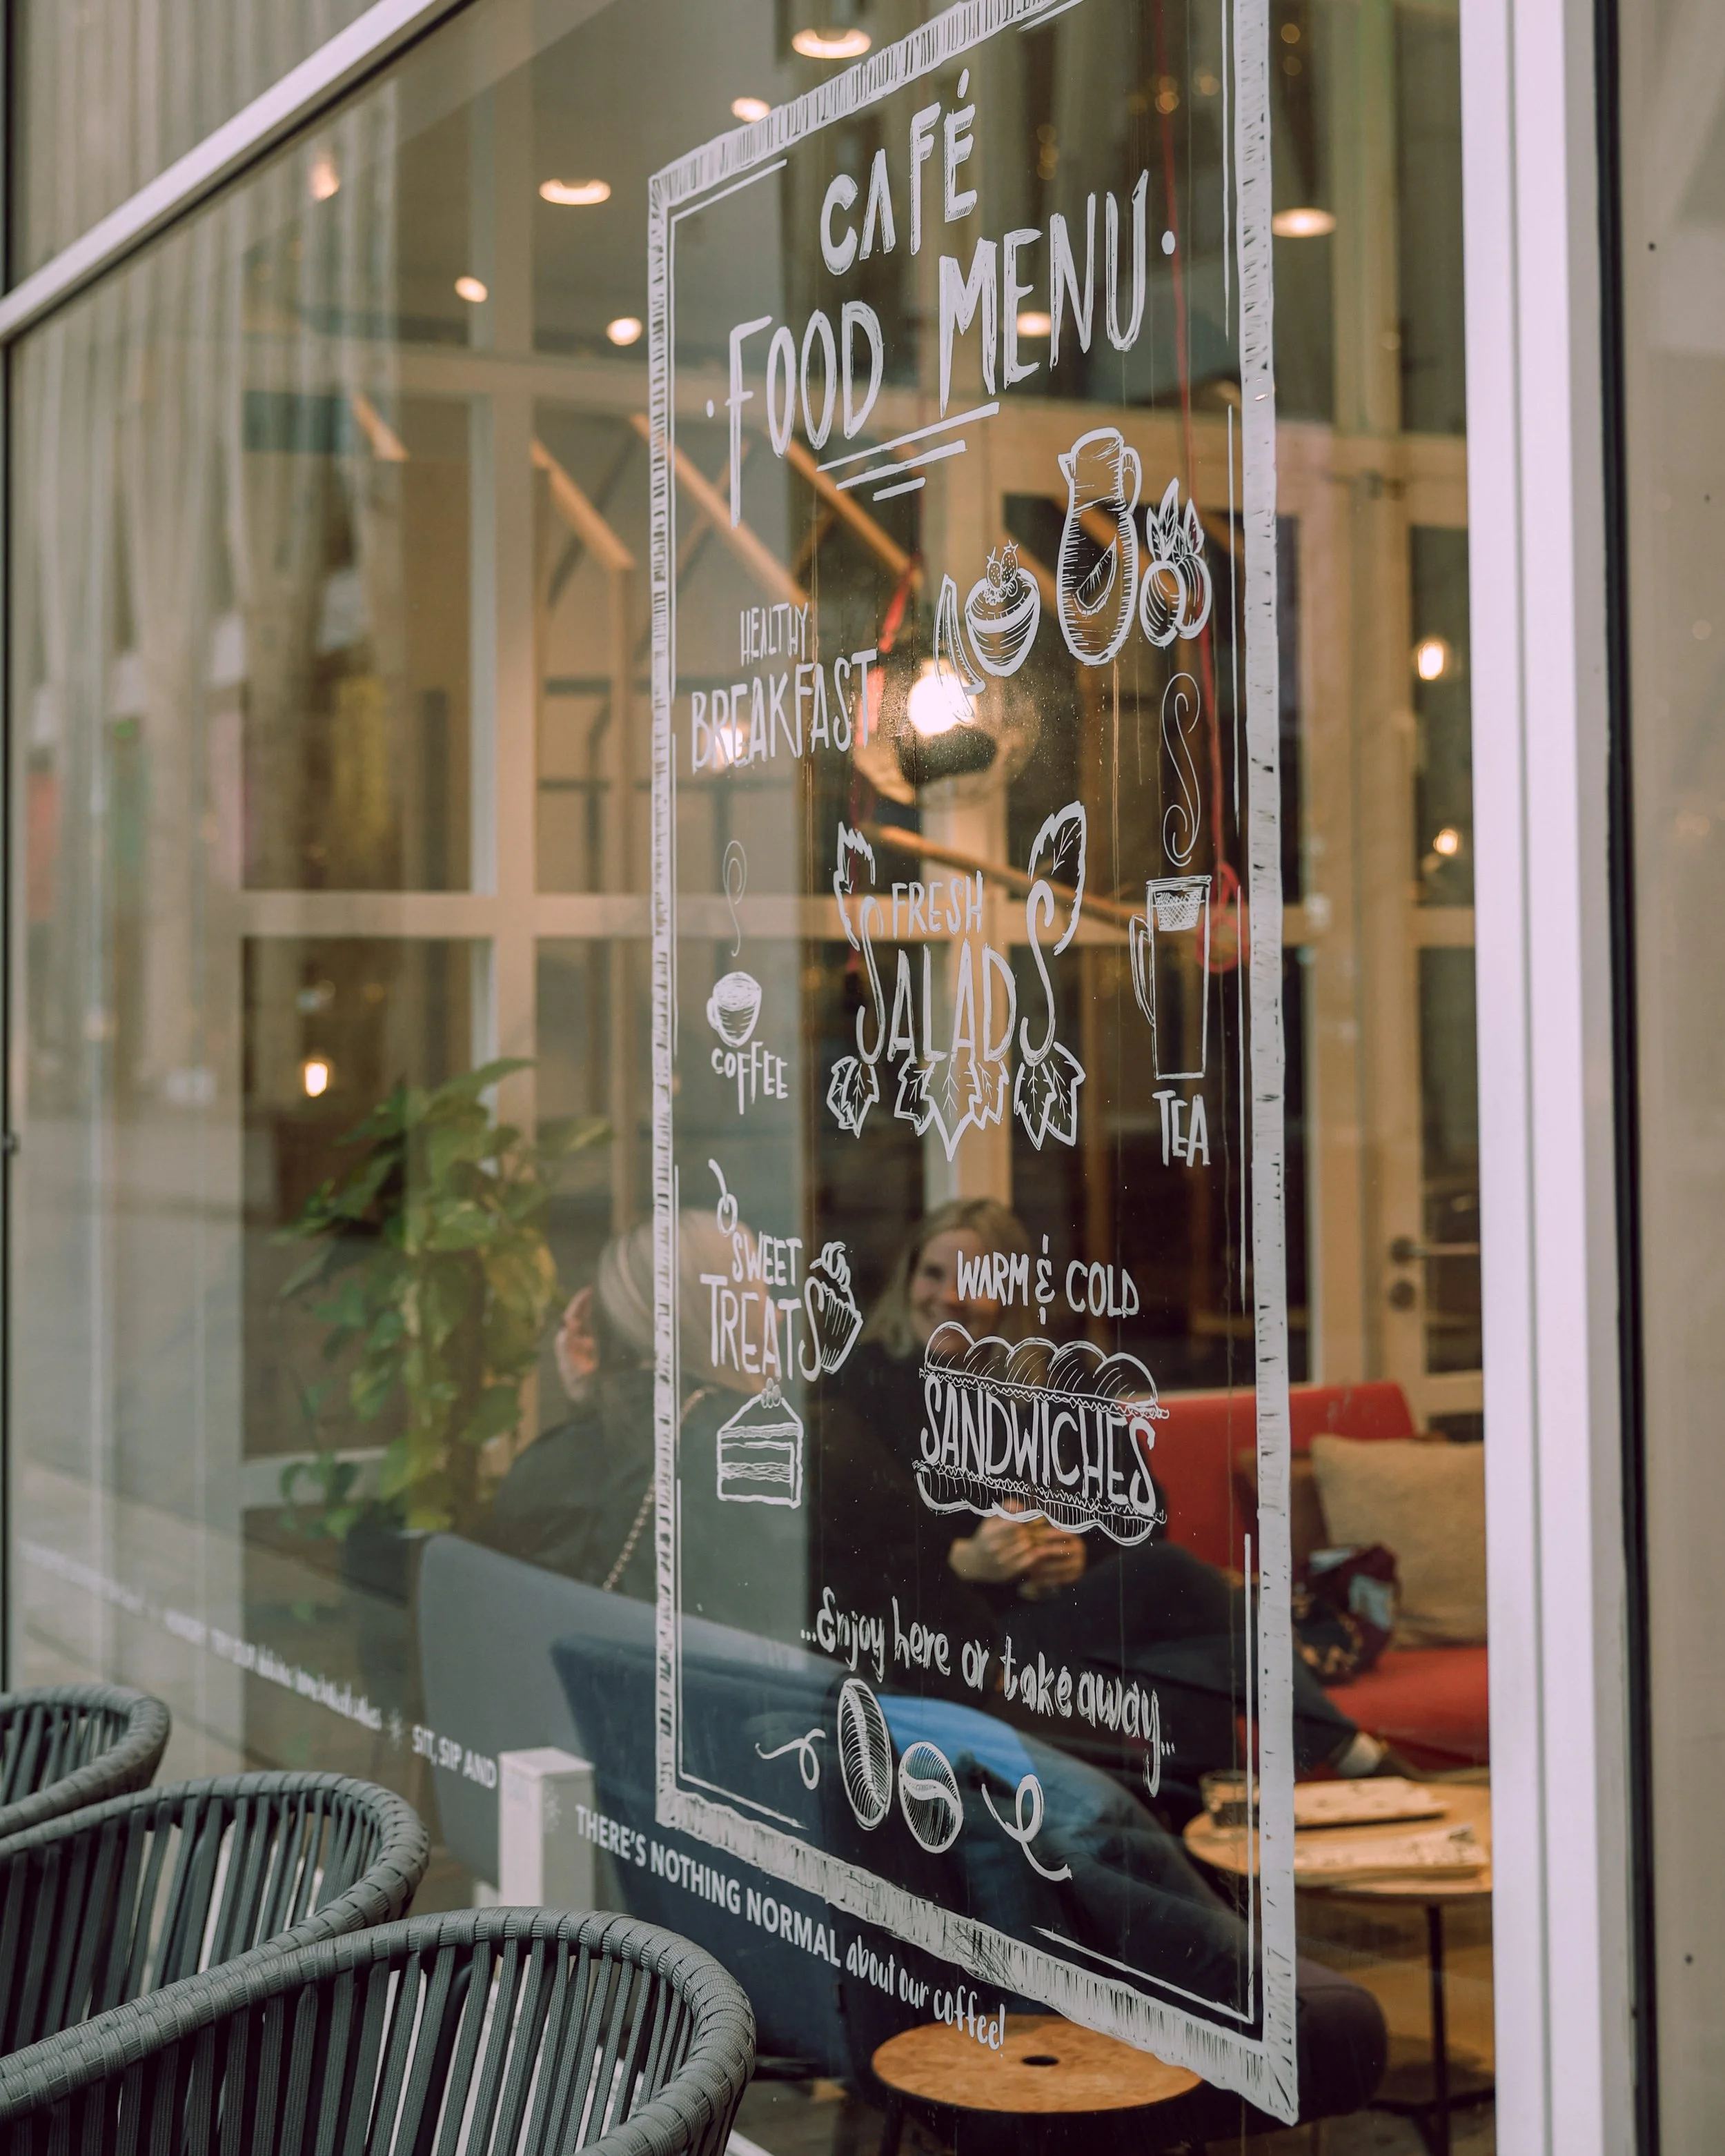 CAFÉ
FOOD MENU
HEALTHY
BREAKFAST
FRESH
SALADS
COFFEE
TEA
SWEET
TREATS
WARM & COLD
SANDWICHES
...Enjoy here or take away...
SIT, SIP AND
THERE'S NOTHING NORMAL about our coffee!